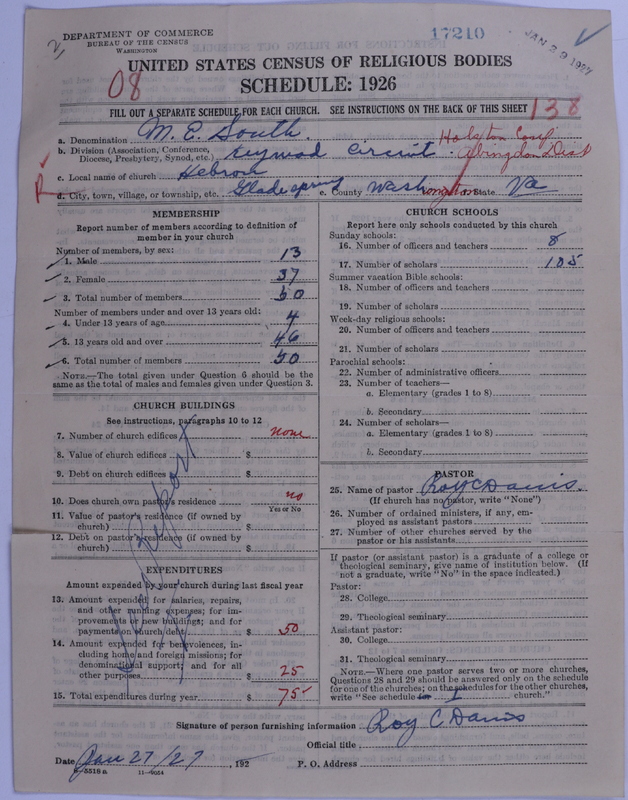 DEPARTMENT OF COMMERCE
BUREAU OF THE CENSUS
WASHINGTON
17210
JAN 29 1927
UNITED STATES CENSUS OF RELIGIOUS BODIES
08
SCHEDULE: 1926
FILL OUT A SEPARATE SCHEDULE FOR EACH CHURCH. SEE INSTRUCTIONS ON THE BACK OF THIS SHEET
138
a. Denomination M. E. South
b. Division (Association, Conference, Diocese, Presbytery, Synod, etc.) circuit
Holston Conf.
Abingdon Dist
c. Local name of church Hebron
R
d. City, town, village, or township, etc. Gladespring e. County Washington State Va
MEMBERSHIP
Report number of members according to definition of member in your church
Number of members, by sex:
1. Male 13
2. Female 37
3. Total number of members 50
Number of members under and over 13 years old:
4. Under 13 years of age 4
5. 13 years old and over 46
6. Total number of members 50
NOTE.—The total given under Question 6 should be the same as the total of males and females given under Question 3.
CHURCH BUILDINGS
See instructions, paragraphs 10 to 12
7. Number of church edifices none
8. Value of church edifices $
9. Debt on church edifices $
10. Does church own pastor's residence no
Yes or No
11. Value of pastor's residence (if owned by church) $
12. Debt on pastor's residence (if owned by church) $
Report
EXPENDITURES
Amount expended by your church during last fiscal year
13. Amount expended for salaries, repairs, and other running expenses; for improvements or new buildings; and for payments on church debt $ 50
14. Amount expended for benevolences, including home and foreign missions; for denominational support; and for all other purposes $ 25
15. Total expenditures during year $ 75
CHURCH SCHOOLS
Report here only schools conducted by this church
Sunday schools:
16. Number of officers and teachers 8
17. Number of scholars 105
Summer vacation Bible schools:
18. Number of officers and teachers
19. Number of scholars
Week-day religious schools:
20. Number of officers and teachers
21. Number of scholars
Parochial schools:
22. Number of administrative officers
23. Number of teachers—
a. Elementary (grades 1 to 8)
b. Secondary
24. Number of scholars—
a. Elementary (grades 1 to 8)
b. Secondary
PASTOR
25. Name of pastor Roy C Davis.
(If church has no pastor, write "None")
26. Number of ordained ministers, if any, employed as assistant pastors
27. Number of other churches served by the pastor or his assistants
If pastor (or assistant pastor) is a graduate of a college or theological seminary, give name of institution below. (If not a graduate, write "No" in the space indicated.)
Pastor:
28. College
29. Theological seminary
Assistant pastor:
30. College
31. Theological seminary
NOTE.—Where one pastor serves two or more churches, Questions 28 and 29 should be answered only on the schedule for one of the churches; on the schedules for the other churches, write "See schedule for 1 church."
Signature of person furnishing information Roy C. Davis
Official title
Date Jan 27/27, 192
P. O. Address
8—5518 a 11—9054